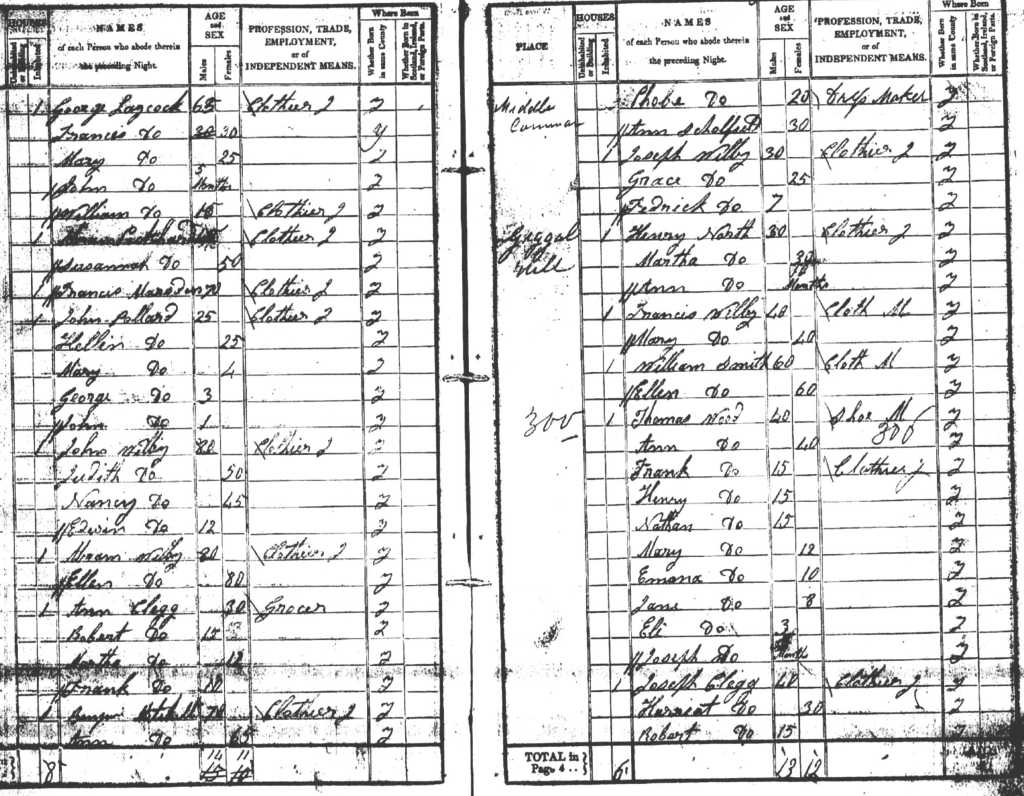 HOUSES
Uninhabited or Building
Inhabited
NAMES
of each Person who abode therein
the preceding Night.
AGE and SEX
Males
Females
PROFESSION, TRADE,
EMPLOYMENT,
or of
INDEPENDENT MEANS.
Where Born
Whether Born in same County
Whether Born in Scotland, Ireland, or Foreign Parts.
1 George Laycock 65 Clothier J y
Frances Do 30 30 y
Mary Do 25 y
John Do 5 Months y
William Do 15 Clothier J y
1 Clothier J y
Susannah Do 50 y
1 Francis Marsden 70 Clothier J y
1 John Pollard 25 Clothier J y
Hellin Do 25 y
Mary Do 4 y
George Do 3 y
John Do 1 y
1 John Wilby 80 Clothier J y
Judith Do 50 y
Nancy Do 45 y
Edwin Do 12 y
1 Abram Wilby 80 Clothier J y
Ellen Do 80 y
1 Ann Clegg 30 Grocer y
Robert Do 12 y
Martha Do 12 y
Frank Do 10 y
1 Benjn Mitchell 70 Clothier J y
Ann Do 65 y
8 14 11
15 10
PLACE
HOUSES
Uninhabited or Building
Inhabited
NAMES
of each Person who abode therein
the preceding Night.
AGE and SEX
Males
Females
PROFESSION, TRADE,
EMPLOYMENT,
or of
INDEPENDENT MEANS.
Where Born
Whether Born in same County
Whether Born in Scotland, Ireland, or Foreign Parts.
Middle Common Phobe Do 20 Dress Maker y
Ann Scholfield 30 y
1 Joseph Wilby 30 Clothier J y
Grace Do 25 y
Fedrick Do 7 y
Hill 1 Henry North 30 Clothier J y
Martha Do 30 y
Ann Do Months y
1 Francis Wilby 40 Cloth M y
Mary Do 40 y
1 William Smith 60 Cloth M y
Ellen Do 60 y
300 1 Thomas Wood 40 Shoe M y
300
Ann Do 40 y
Frank Do 15 Clothier J y
Henry Do 15 y
Nathan Do 15 y
Mary Do 12 y
Emma Do 10 y
Jane Do 8 y
Eli Do 3 y
Joseph Do Months y
1 Joseph Clegg 40 Clothier J y
Harriat Do 30 y
Robert Do 15 y
TOTAL in Page 4 .. 6 13 12